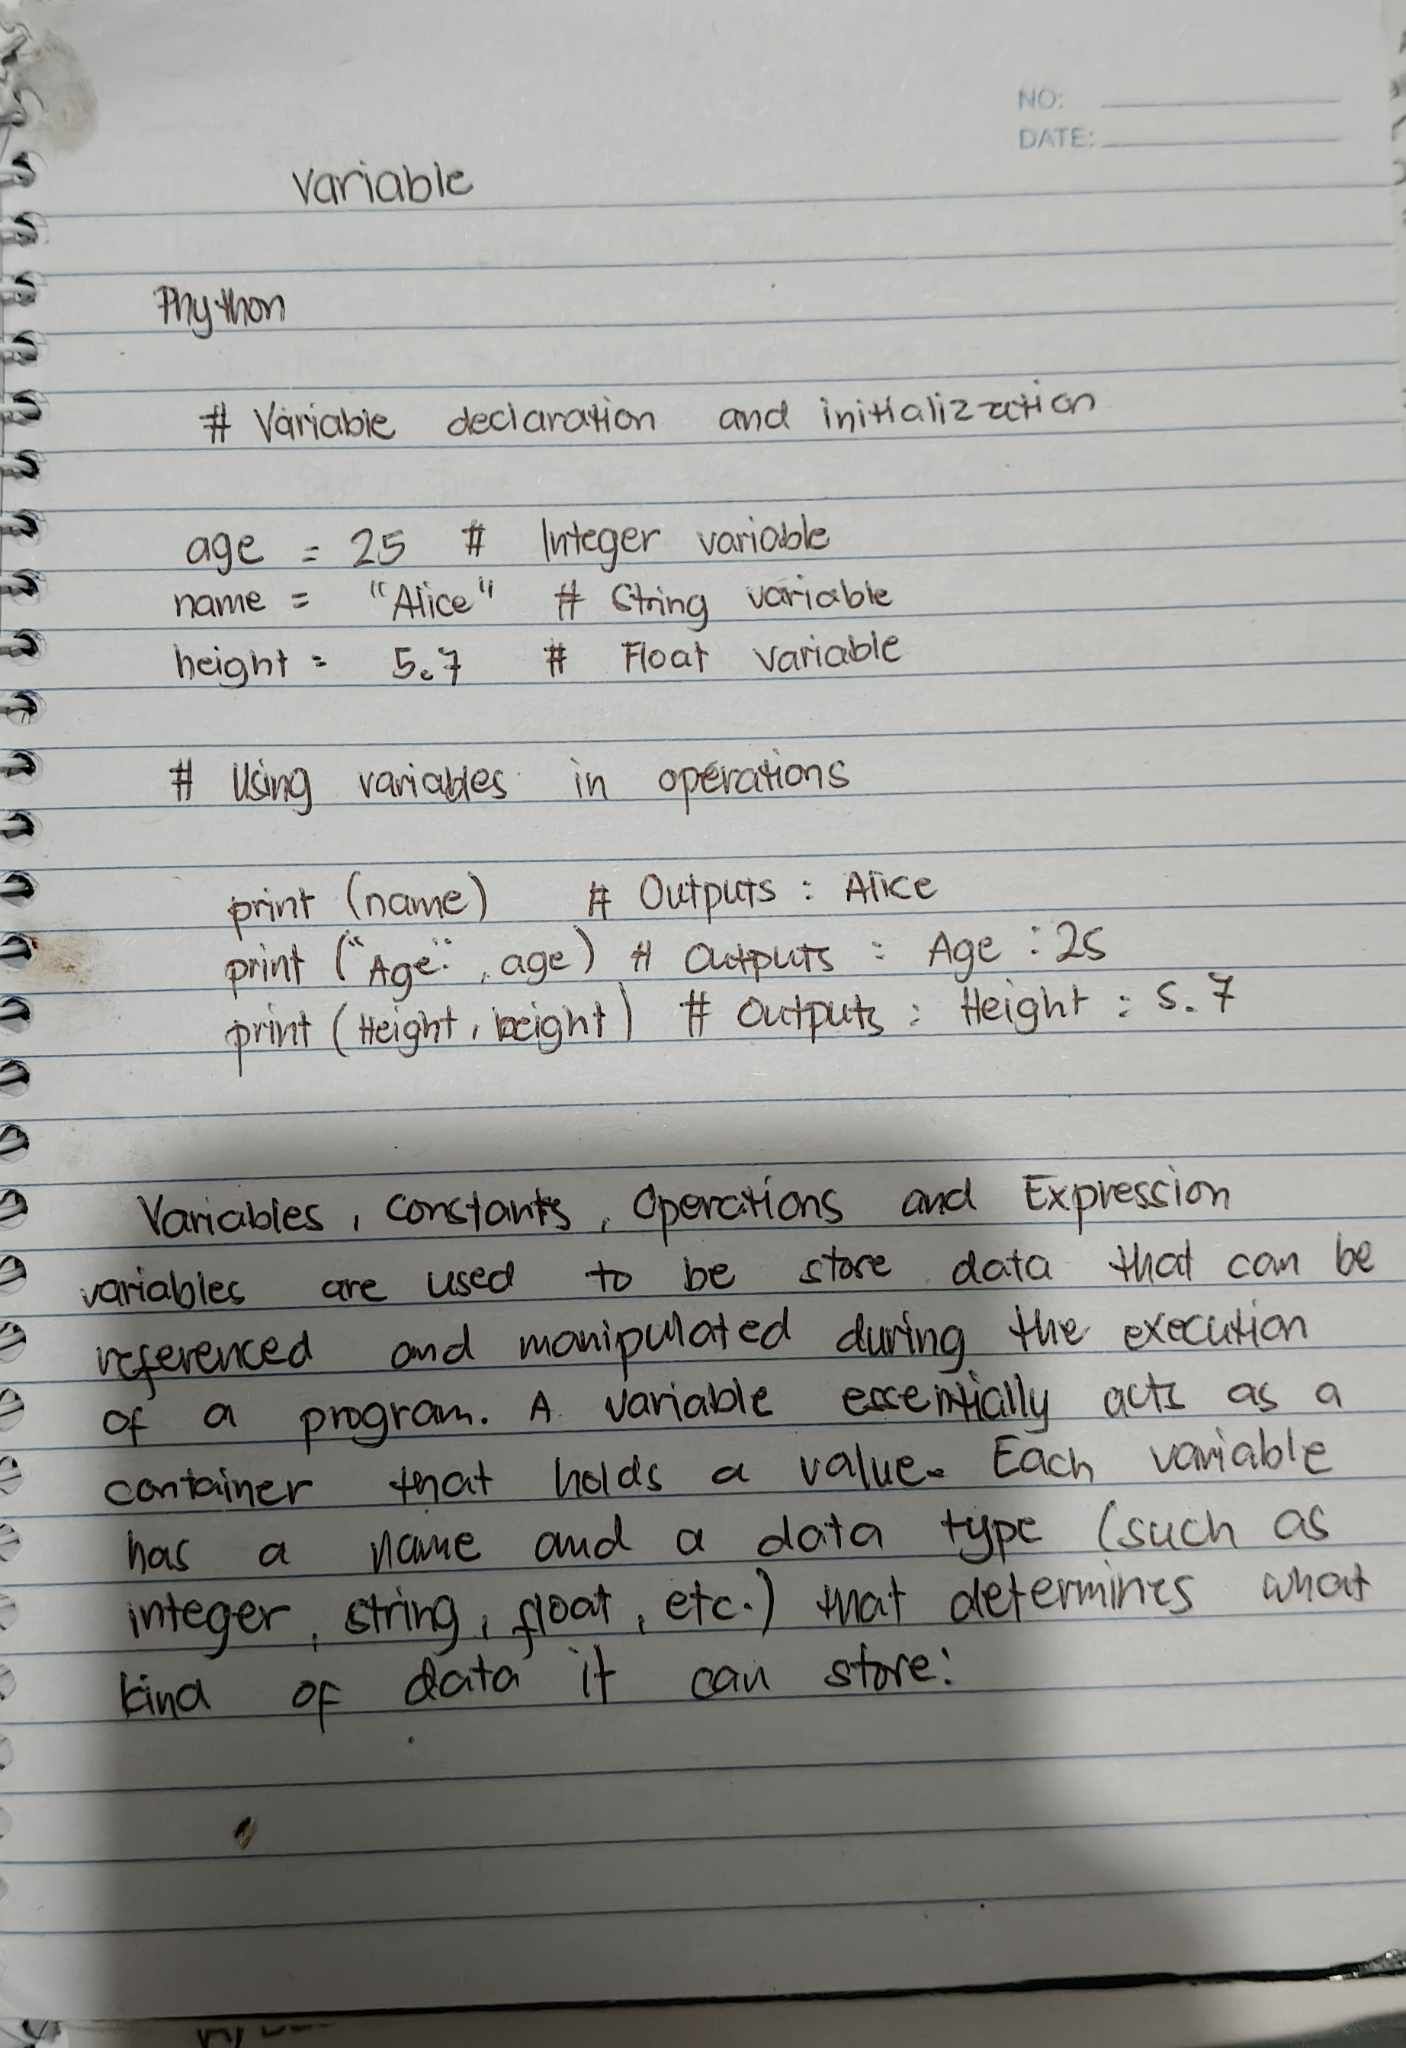 NO:
DATE:
Variable
Phython
# Variable declaration and initialization
age = 25 # Integer variable
name = "Alice" # String variable
height = 5.7 # Float variable
# Using variables in operations
print (name) # Outputs : Alice
print ("Age:", age) # Outputs : Age : 25
print (Height, height) # Outputs : Height : 5.7
Variables, constants, Operations and Expression
variables are used to be store data that can be
referenced and manipulated during the execution
of a program. A variable essentially acts as a
container that holds a value. Each variable
has a name and a data type (such as
integer, string, float, etc.) that determines what
kind of data it can store: